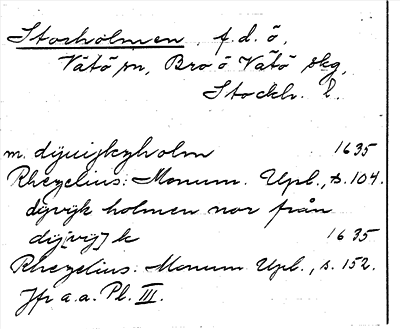 Storholmen, f.d. ö,
Vätö sn, Bro o Vätö skg,
Stockh. l.
m. dijuijkzholm 1635
Rhezelius: Monum. Upl., s. 104.
dijvijk holmen nor från
dij[vij]k 1635
Rhezelius: Monum Upl., s. 152.
Jfr a.a. Pl. III.